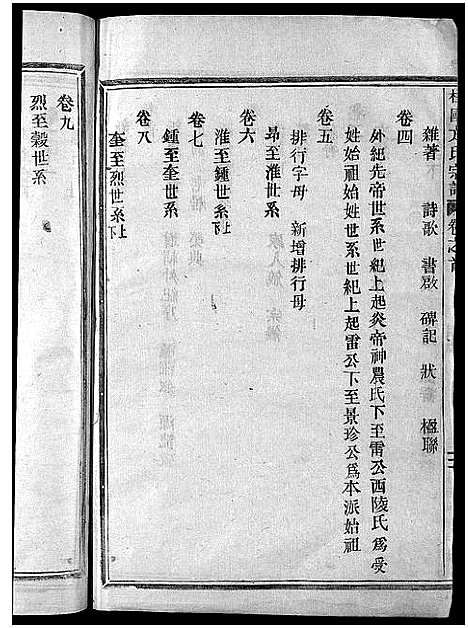 氏宗譜 卷之首
雜著 詩歌 書啟 碑記 狀 楹聯
卷四
外紀先帝世系世紀上起炎帝神農氏下至雷公西陵氏為受
姓始祖始姓世系世紀上起雷公下至景珍公為本派始祖
卷五
排行字母 新增排行母
卷六
昂至淮世系
淮至鍾世系上下
卷七
鍾至奎世系
卷八
奎至烈世系上下
卷九
烈至穀世系